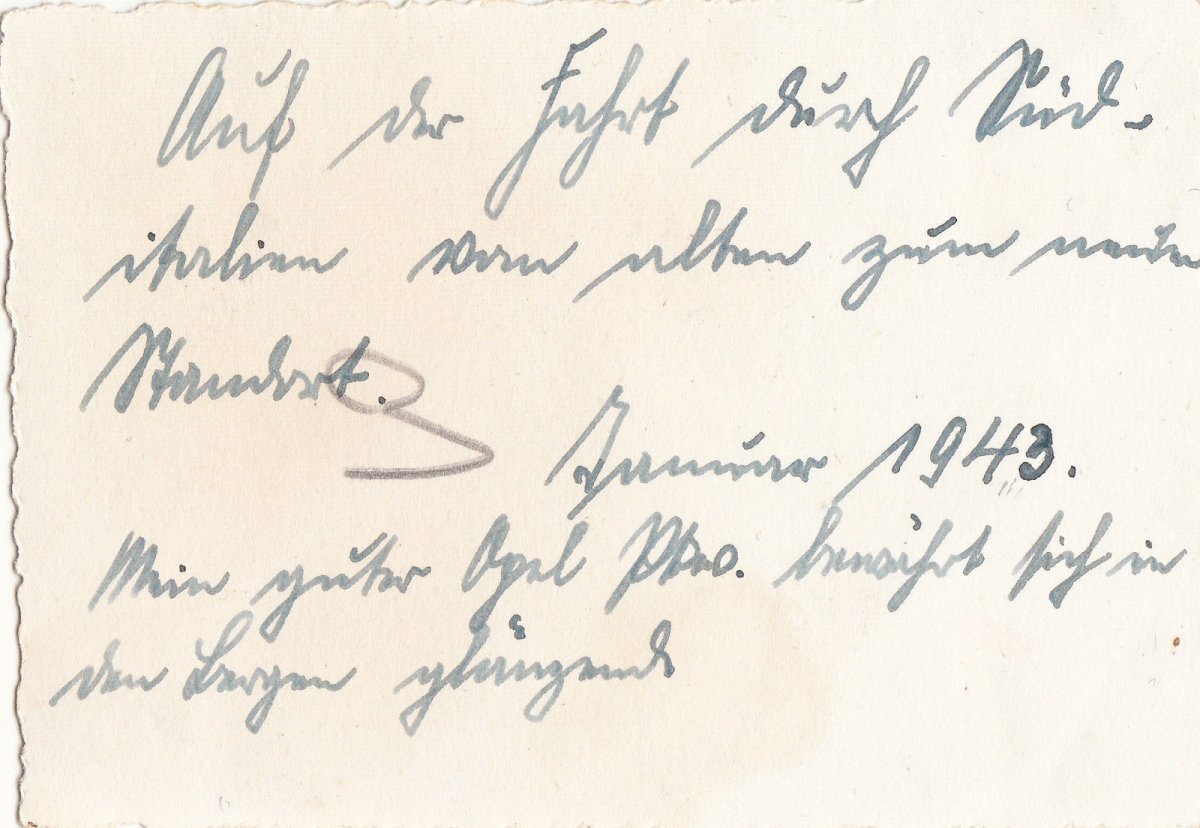 Auf der Fahrt durch Süd-
italien vom alten zum neuen
Standort.
Januar 1943.
Mein guter Opel Pkw. bewährt sich in
den Bergen glänzend